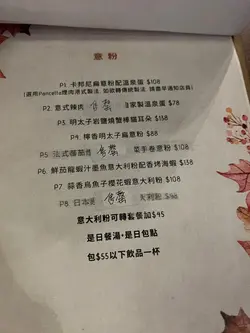 意粉
P1. 卡邦尼扁意粉配溫泉蛋 $108
(選用Pancetta煙肉港式製法, 如欲轉傳統製法, 請盡早通知店員)
P2. 意式辣肉 售罄 家製溫泉蛋 $78
P3. 明太子岩鹽燒蟹棒貓耳朵 $138
P4. 檸香明太子扁意粉 $88
P5. 法式 售罄 菜手卷意粉 $108
P6. 鮮茄龍蝦汁墨魚意大利粉配香烤海蝦 $138
P7. 蒜香烏魚子櫻花蝦意大利粉 $108
P8. 日本 售罄 大利粉 $98
意大利粉可轉套餐加$45
是日餐湯+是日包點
包$55以下飲品一杯